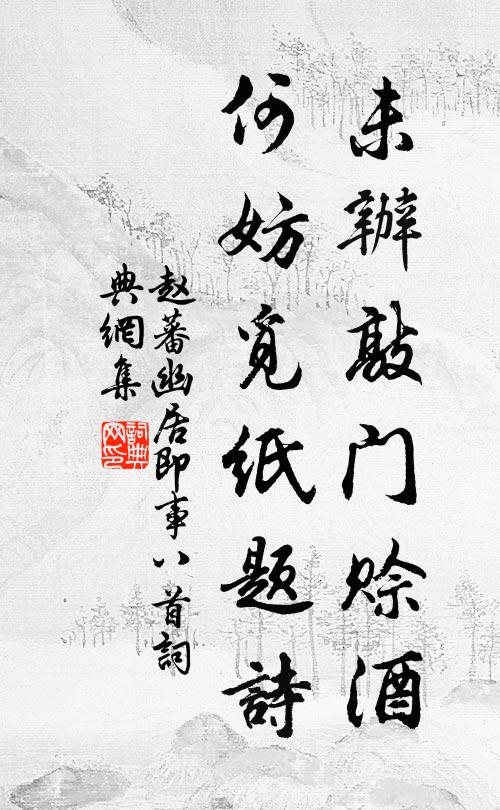 未辦敲门赊酒
何妨觅纸题詩
赵蕃幽居即事八首詞
典網集
詞典
网印